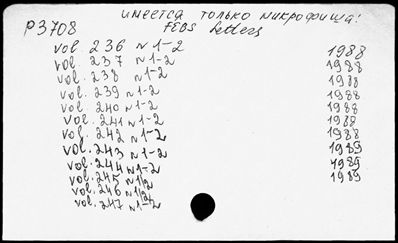 имеется только микрофиша!
P3708 FEBS Letters
vol 236 N 1-2 1988
vol. 237 N 1-2 1988
vol. 238 N 1-2 1988
vol. 239 N 1-2 1988
vol. 240 N 1-2 1988
vol. 241 N 1-2 1988
vol. 242 N 1-2 1988
vol. 243 N 1-2 1989
vol. 244 N 1-2 1989
vol. 245 N 1/2 1989
vol. 246 N 1/2
vol. 247 N 1-2